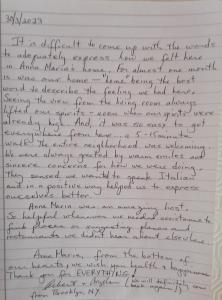 30/5/2023
It is difficult to come up with the words
to adequately express how we felt here
in Anna Maria's home. For almost one month
is was our home — "home" being the best
word to describe the feeling we had here.
Seeing the view from the living room always
lifted our spirits - even when our spirits were
already high. And, it was so easy to get
everywhere from here... a 5-15 minute
walk. The entire neighborhood was welcoming.
We were always greeted by warm smiles and
sincere concerns for how we were doing.
They sensed we wanted to speak Italian
and in a positive way helped us to express
ourselves better.
Anna Maria was an amazing host.
So helpful whenever we needed assistance to
find places or suggesting places and
restaurants we didn't hear about elsewhere.
Anna Maria, from the bottom of
our hearts we wish you health & happiness.
Thank you for EVERYTHING!
Robert + (we will definitely come
from Brooklyn, NY back again!)